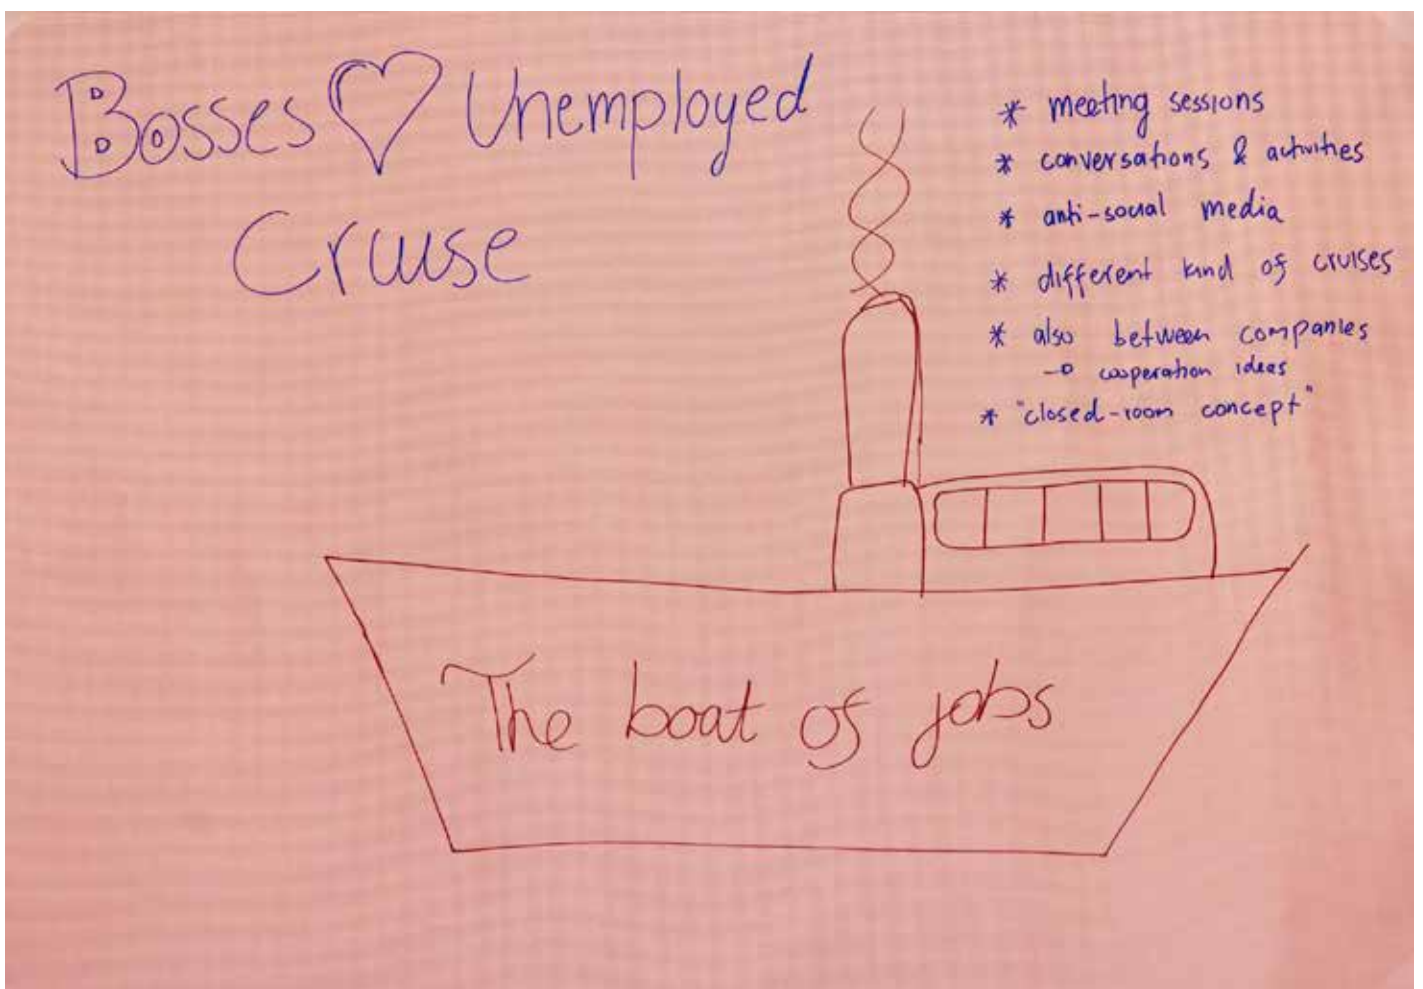 Bosses ♡ Unemployed
Cruise
* meeting sessions
* conversations & activities
* anti-social media
* different kind of cruises
* also between companies
→ cooperation ideas
* "closed-room concept"
The boat of jobs